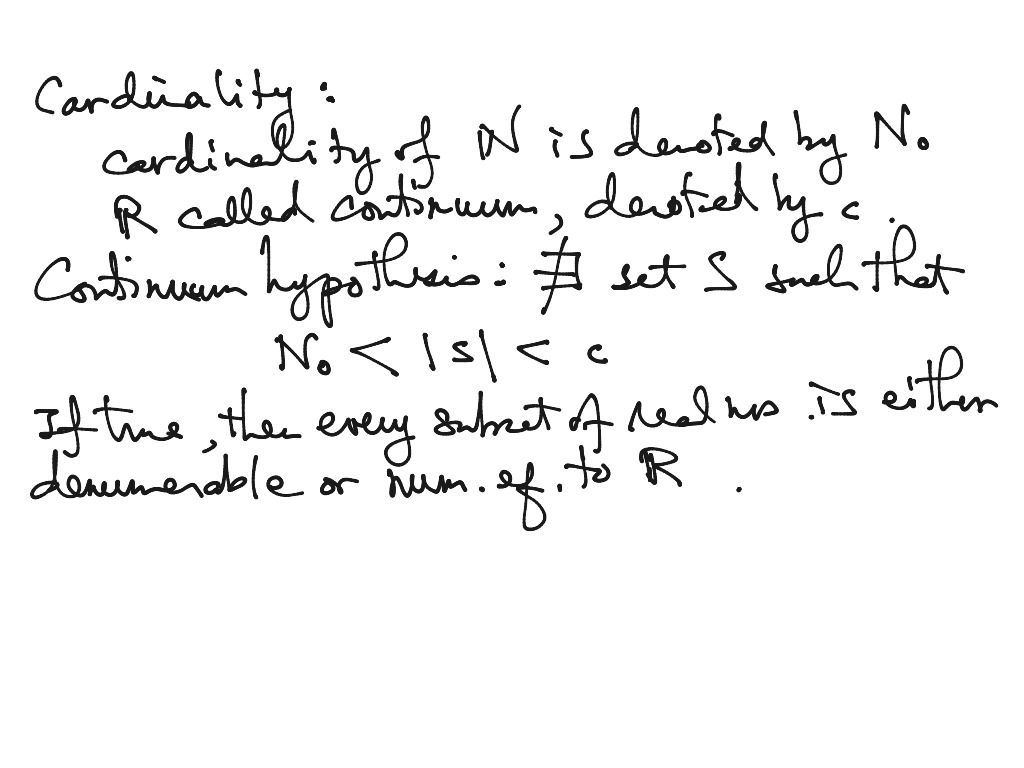 Cardinality:
cardinality of ℕ is denoted by ℵ₀
ℝ called continuum, denoted by c.
Continuum hypothesis: ∄ set S such that
ℵ₀ < |S| < c
If true, then every subset of real nos. is either
denumerable or num. eq. to ℝ.